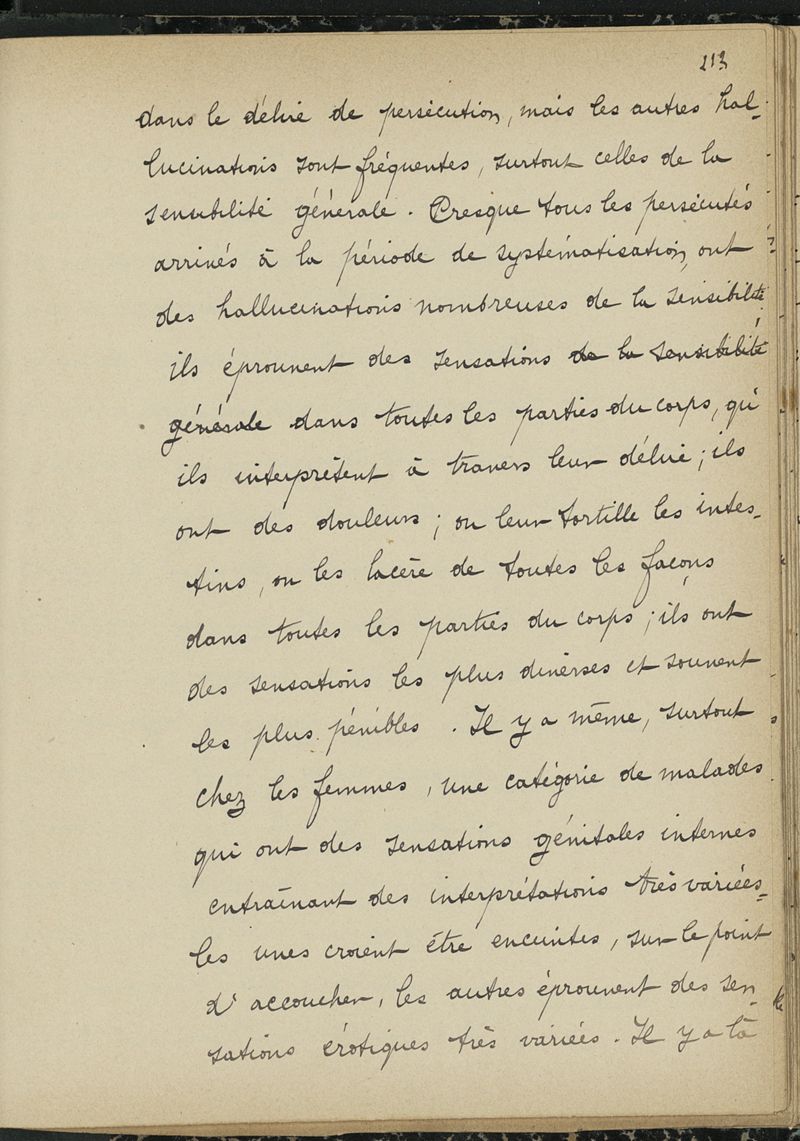 213
dans le délire de persécution, mais les autres hal-
lucinations sont fréquentes, surtout celles de la
sensibilité générale. Presque tous les persécutés
arrivés à la période de systématisation, ont
des hallucinations nombreuses de la sensibilité
ils éprouvent des sensations de la sensibilité
générale dans toutes les parties du corps, qu'
ils interprètent à travers leur délire ; ils
ont des douleurs ; on leur tortille les intes-
tins, on les lacère de toutes les façons
dans toutes les parties du corps ; ils ont
des sensations les plus diverses et souvent
les plus pénibles. Il y a même, surtout
chez les femmes, une catégorie de malades
qui ont des sensations génitales internes
entraînant des interprétations très variées
les unes croient être enceintes, sur le point
d'accoucher, les autres éprouvent des sen-
sations érotiques très variées. Il y a là